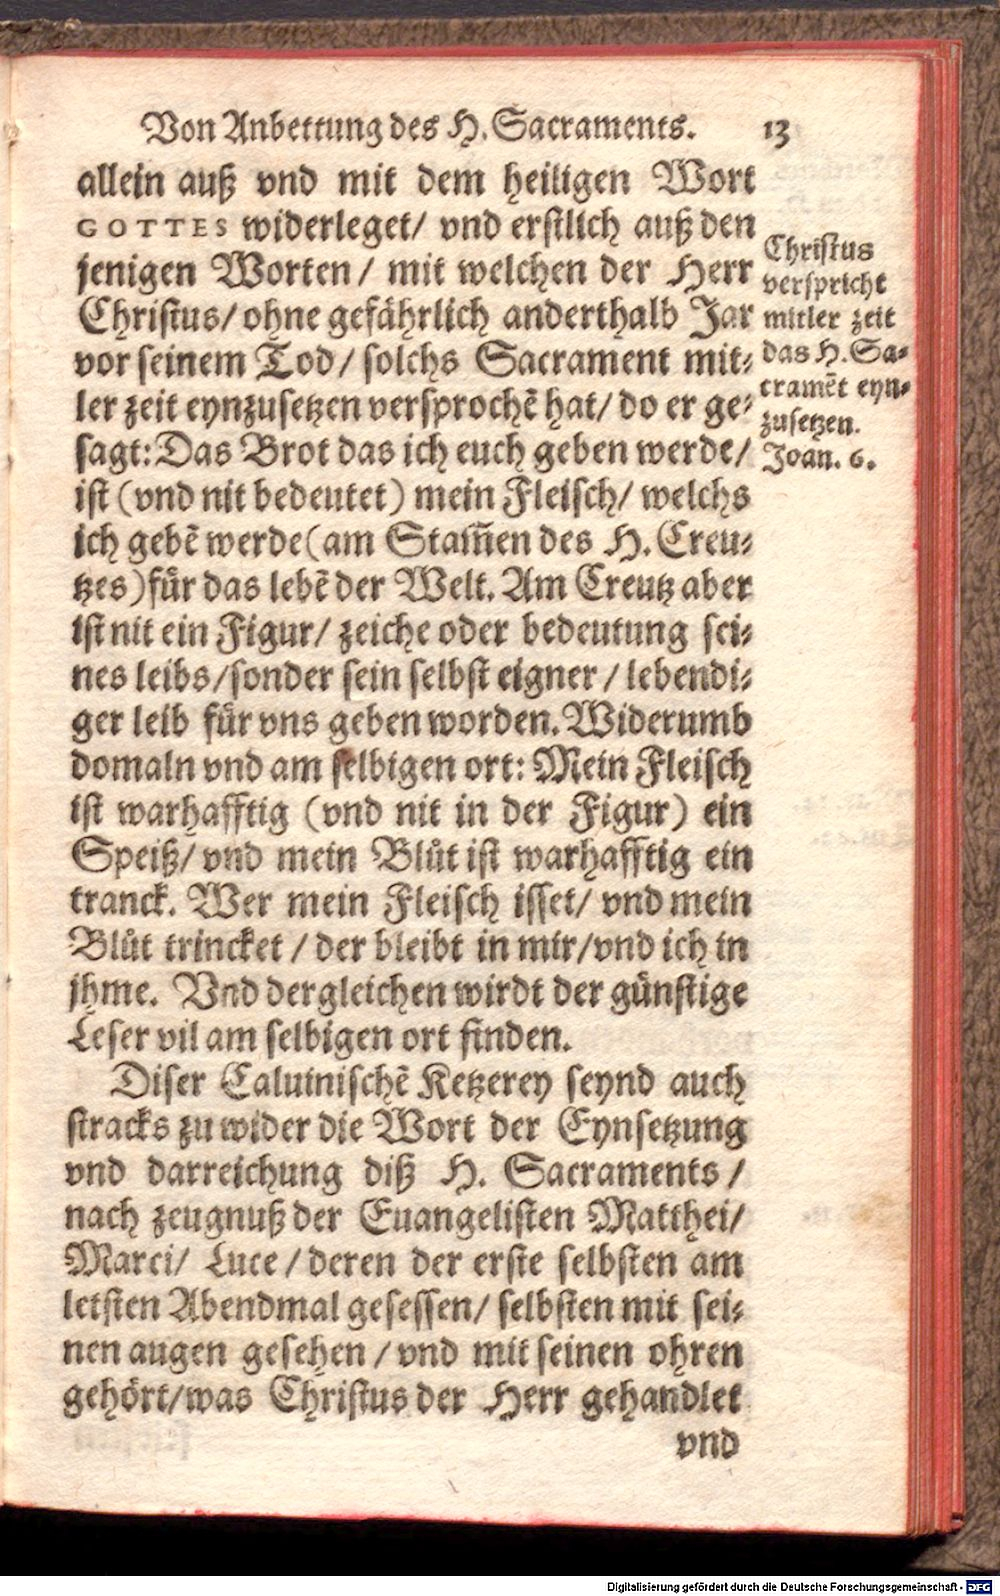 Von Anbettung des H. Sacraments. 13
allein auß vnd mit dem heiligen Wort
GOTTES widerleget/ vnd erstlich auß den
jenigen Worten/ mit welchen der Herr
Christus/ ohne gefährlich anderthalb Jar
vor seinem Tod/ solchs Sacrament mit-
ler zeit eynzusetzen versprochẽ hat/ do er ge-
sagt: Das Brot das ich euch geben werde/
ist (vnd nit bedeutet) mein Fleisch/ welchs
ich gebẽ werde (am Stam̃en des H. Creu-
tzes) für das lebẽ der Welt. Am Creutz aber
ist nit ein Figur/ zeiche oder bedeutung sei-
nes leibs/ sonder sein selbst eigner/ lebendi-
ger leib für vns geben worden. Widerumb
domaln vnd am selbigen ort: Mein Fleisch
ist warhafftig (vnd nit in der Figur) ein
Speiß/ vnd mein Blůt ist warhafftig ein
tranck. Wer mein Fleisch isset/ vnd mein
Blůt trincket/ der bleibt in mir/ vnd ich in
jhme. Vnd dergleichen wirdt der günstige
Leser vil am selbigen ort finden.
Diser Caluinischẽ Ketzerey seynd auch
stracks zu wider die Wort der Eynsetzung
vnd darreichung diß H. Sacraments/
nach zeugnuß der Euangelisten Matthei/
Marci/ Luce/ deren der erste selbsten am
letsten Abendmal gesessen/ selbsten mit sei-
nen augen gesehen/ vnd mit seinen ohren
gehört/ was Christus der Herr gehandlet
vnd
Christus
verspricht
mitler zeit
das H. Sa-
cramẽt eyn-
zusetzen.
Joan. 6.
Digitalisierung gefördert durch die Deutsche Forschungsgemeinschaft - DFG